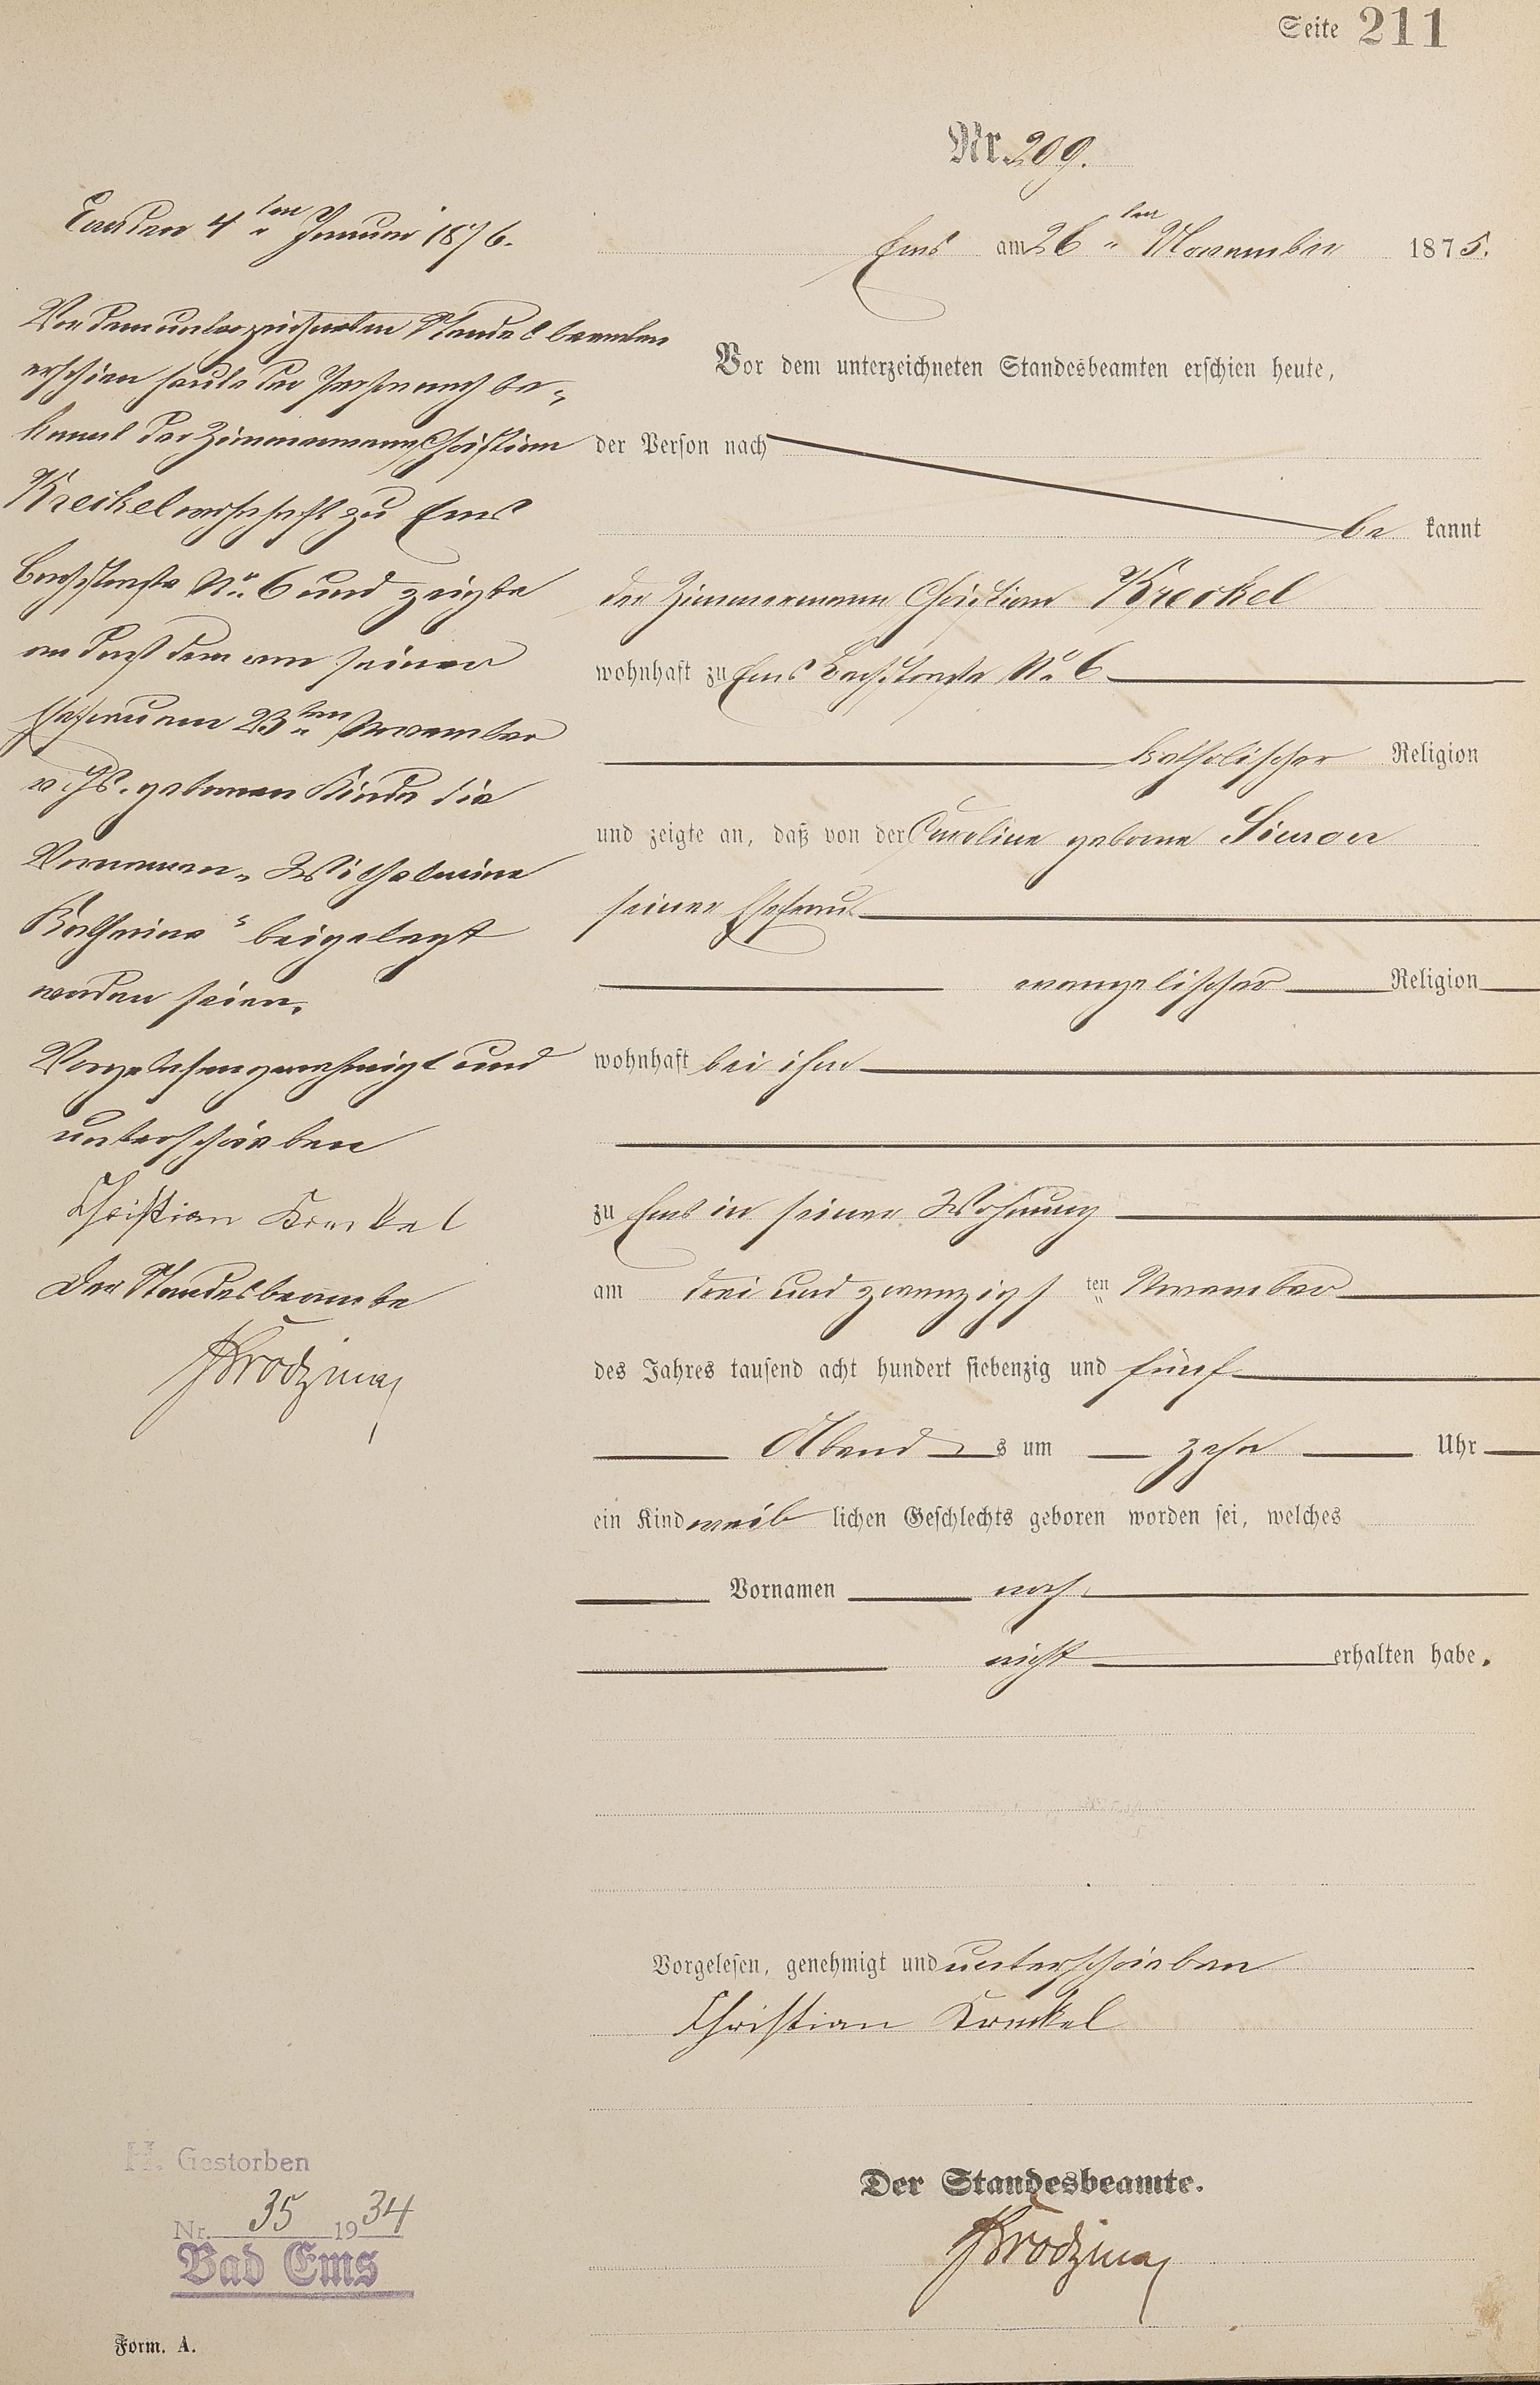 Seite 211
Nr. 209.
Ems am 26ten November 1875.
Vor dem unterzeichneten Standesbeamten erschien heute,
der Person nach
be kannt
der Zimmermann Christian Kreckel
wohnhaft zu Ems Bachstraße No. 6
katholischer Religion
und zeigte an, daß von der Caroline geborne
seiner Ehefrau
evangelischer Religion
wohnhaft bei ihm
zu Ems in seiner Wohnung
am drei und zwanzigs ten November
des Jahres tausend acht hundert siebenzig und fünf
Abend s um zehn Uhr
ein Kind weib lichen Geschlechts geboren worden sei, welches
Vornamen noch
nicht erhalten habe.
Vorgelesen, genehmigt und unterschrieben
Christian Kreckel
Der Standesbeamte.
Ems den 4ten Januar 1876.
Vor dem unterzeichneten Standesbeamten
erschien heute der Person nach be-
kannt der Zimmermann Christian
Kreikel wohnhaft zu Ems
Bachstraße No. 6 und zeigte
an daß dem von seiner
Ehefrau am 23ten November
v. Js. gebornen Kinde die
Vornamen „Wilhelmine
Katharina“ beigelegt
worden seien.
Vorgelesen genehmigt und
unterschrieben
Christian Kreckel
Der Standesbeamte
H. Gestorben
Nr. 35 1934
Bad Ems
Form. A.